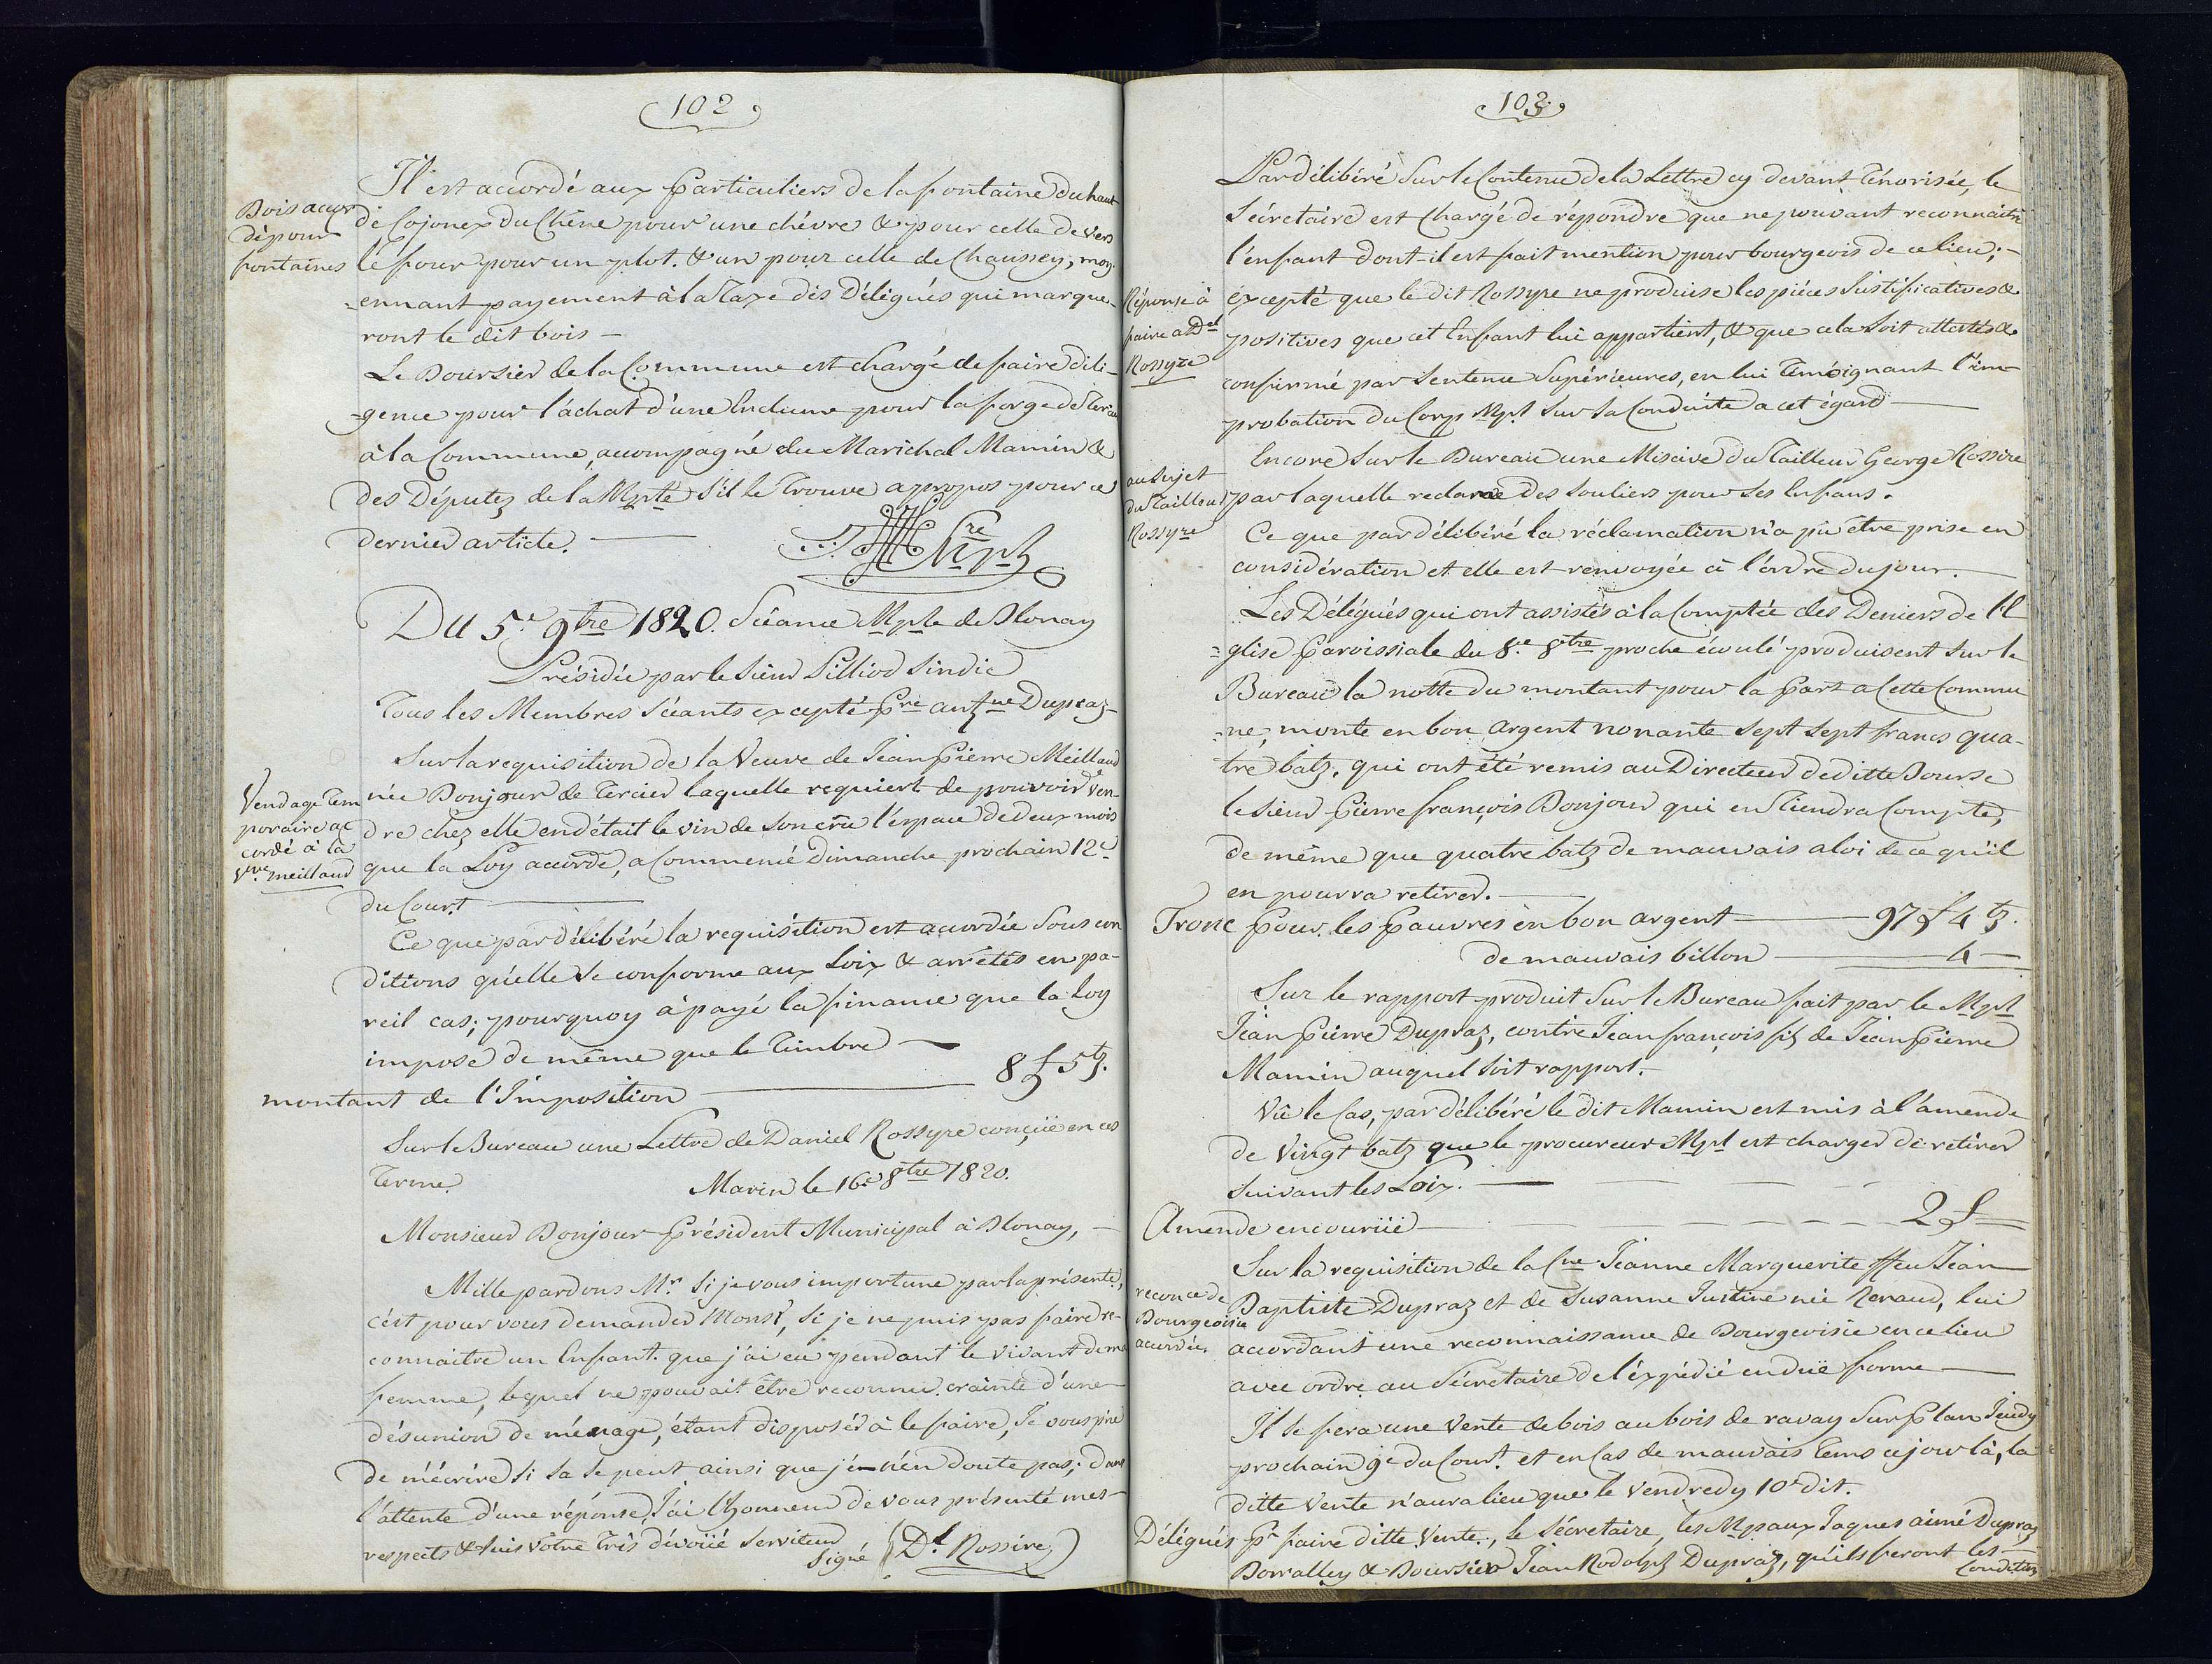 102
Il est accordé aux particuliers de la fontaine du haut
Bois accor
dé pour
fontaines
de Cojonex du Chêne pour une chévre & pour celle de vers
le four pour un plot. & un pour celle de Chaussey, moy-
=ennant payement à la Taxe dis Déligués qui marque-
ront le dit bois –
Le Boursier de la Commune est chargé de faire dili-
=gence pour l'áchat d'une Enclume pour la forge de Tercier
à la Commune, accompagné du Marichal Mamin &
des Députez de la Mpté s'il le trouve apropos pour ce
dernier article.
Du 5.e 9bre 1820. Séance Mple de Blonay
Présidée par le Sieur Pilliod Sindic
Tous les Membres Séants excepté Pre antne Dupraz –
Vendage Tem
poraire ac
cordé à la
Vve meillaud
Sur la requisition de la Veuve de Jean Pierre Meillaud
née Bonjour de Tercier laquelle requiert de pouvoir Ven-
dre chez elle en détait le vin de son crû l'éspace de deux mois
que la Loy accorde, a Commencé Dimanche prochain 12e
du Court
Ce que par délibéré la requisition est accordée Sous con
ditions qu'elle se conforme aux Loix & arrêtés en pa-
reil cas; pourquoy à payé la finance que la Loy
impose de même que le Timbre –
montant de l'Imposition 8 f 5 bz.
Sur le Bureau une Lettre de Daniel Rossyre conçüe en ces
Terme.
Marin le 16e 8bre 1820.
Monsieur Bonjour Président Municipal à Blonay, –
Mille pardons Mr. Si je vous importune par la présente,
c'ést pour vous demander Monsr, Si je ne puis pas faire re-
connaitre un Enfant. que j'ai eu pendant le vivant de ma
femme, lequel ne pouvait être reconnu. crainte d'une
désunion de ménage, étant disposér à le faire, Je vous prie
de m'écrire Si Sa Se peut ainsi que je n'en doute pas; dans
l'attente d'une réponse, J'ai l'honneur de vous présenté mes
respects & suis vôtre Três dévoüé Serviteur
Signé (Dl Rossire)
103.
Par délibéré Sur le Contenu de la Lettre cy devant Ténorisée, le
Sécretaire est Chargé de répondre que ne pouvant reconnaitre
l'enfant dont-il est fait mention pour bourgeois de ce lieu; –
Réponse à
faire a Del
Rossyre
éxcepté que le dit Rossyre ne produise les piéces Justificatives &
positives que cet Enfant lui appartient, & que cela Soit attestés &
confirmé par Sentence Supérieures, en lui Témoignant l'im-
probation du Corp Mpl Sur Sa Conduite a cet égard
au Sujet
du Tailleur
Rossyre
Encore Sur le Bureau une Miscive du Tailleur George Rossire
par laquelle reclame des Souliers pour Ses Enfans.
Ce que par délibéré la réclamation n'a pû être prise en
considération et elle est renvoyée à l'ordre du jour.
Les Délégués qui ont assistés à la Comptée des Deniers de l'E
=glise Paroissiale du 8.e 8bre proche écoulé produisent Sur le
Bureau la notte du montant pour la Part a Cette Commu
=ne, monte en bon argent nonante sept sept francs qua-
tre batz. qui ont été remis au Directeur de ditte Bourse
le Sieur Pierre françois Bonjour qui en Tiendra Compte,
de même que quatre batz de mauvais aloi de ce qu'il
en pourra retirer.
Tronc Pour les Pauvres en bon argent 97 f 4 bz.
de mauvais billon 4 –
Sur le rapport produit Sur le Bureau fait par le Mpl
Jean Pierre Dupraz, contre Jean françois fs de Jean Pierre
Mamin auquel Soit rapport.
Vû le Cas, par délibéré le dit Mamin est mis à l'amende
de Vingt batz que le procureur Mpl est charger de retirer
Suivant les Loix.
Amende encouriüe 2 f
reconce de
Bourgeoisie
accordée,
Sur la requisition de la Cne Jeanne Marguerite ffeu Jean
Baptiste Dupraz et de Susanne Justine née Renaud, lui
accordant une reconnaissance de Bourgeoisie en ce lieu
avec ordre au Sécretaire de l'éxpédié en düe forme
Il Se fera une Vente de bois au bois de ravay Sur Plan Jeudy
prochain 9e du Court. et en Cas de mauvais Tems ce jour là, la
ditte Vente n'aura lieu que le Vendredy 10e dit.
Délégués Pr faire ditte Vente., le Sécretaire, les Mpaux Jaques aimé Dupraz
Borralley & Boursier Jean Rodolph Dupraz, qu'ils feront les –
Conditions